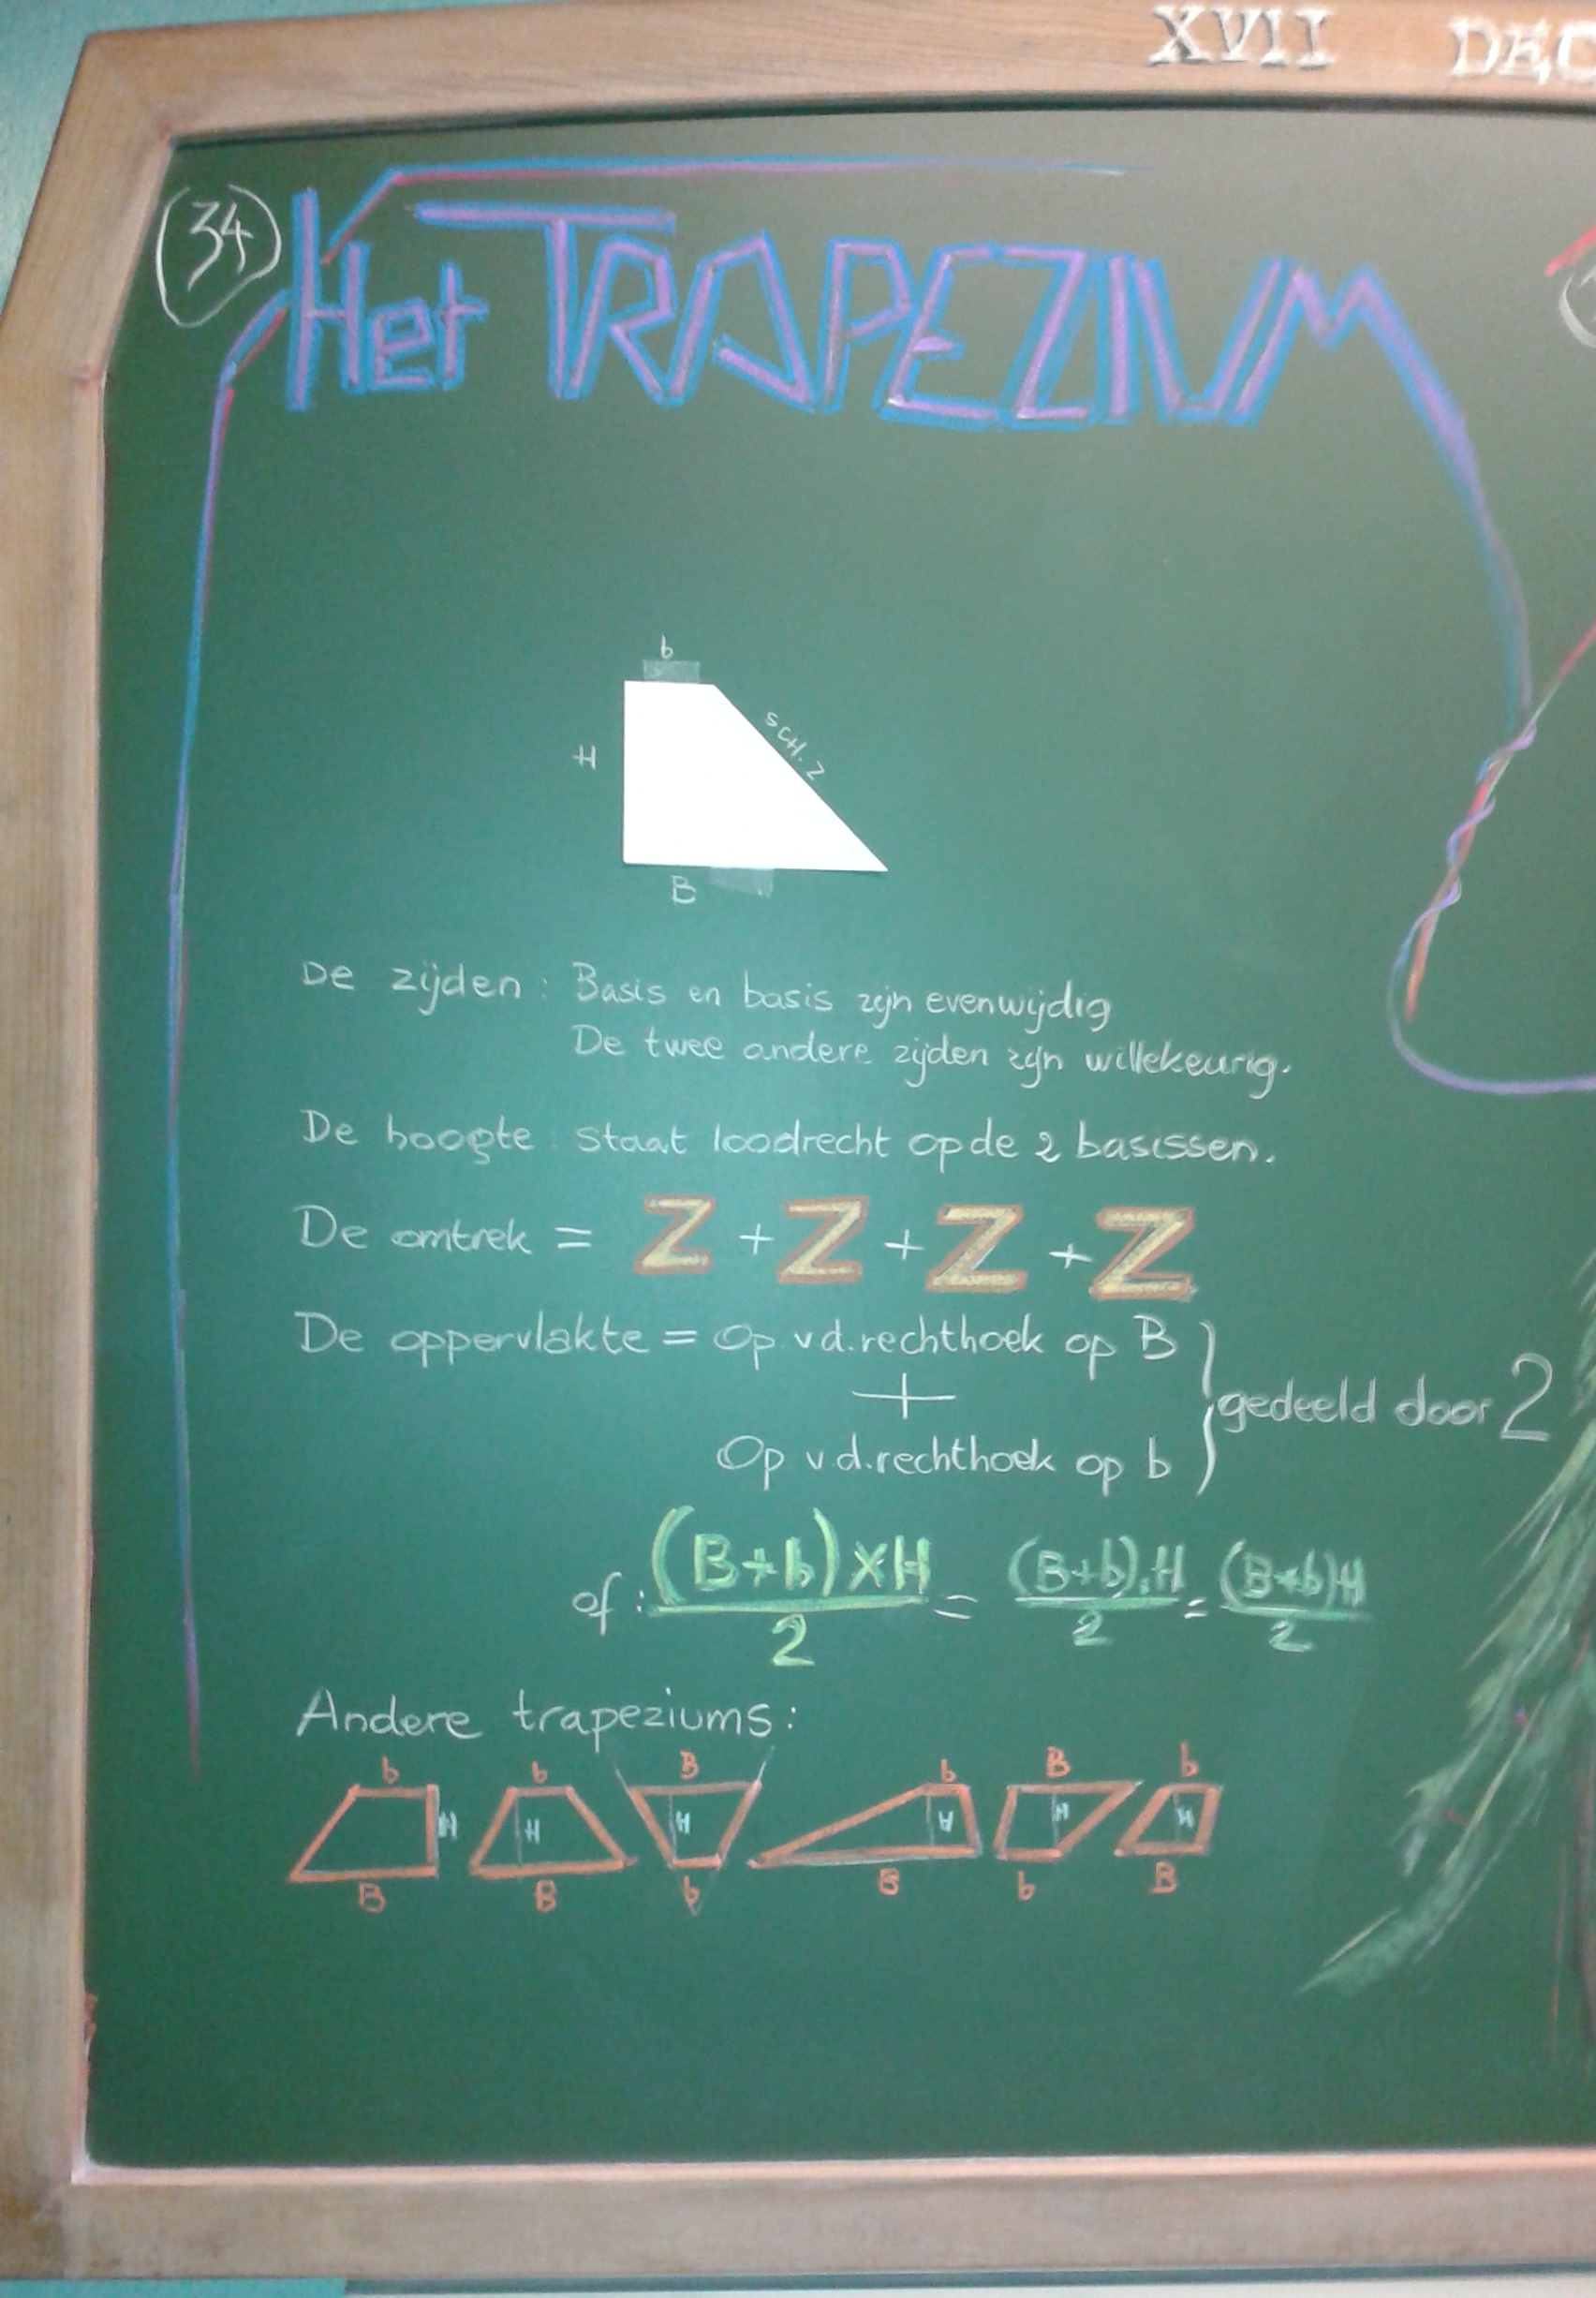 XVII DEC
34
Het TRAPEZIUM
b
H
SCH. Z
B
De zijden : Basis en basis zijn evenwijdig
De twee andere zijden zijn willekeurig.
De hoogte : staat loodrecht op de 2 basissen.
De omtrek = Z + Z + Z + Z
De oppervlakte = Op v.d. rechthoek op B
+
Op v.d. rechthoek op b
} gedeeld door 2
of : (B+b)xH/2 = (B+b).H/2 = (B+b)H/2
Andere trapeziums :
b b B b B b
H H H H H H
B B b B b B